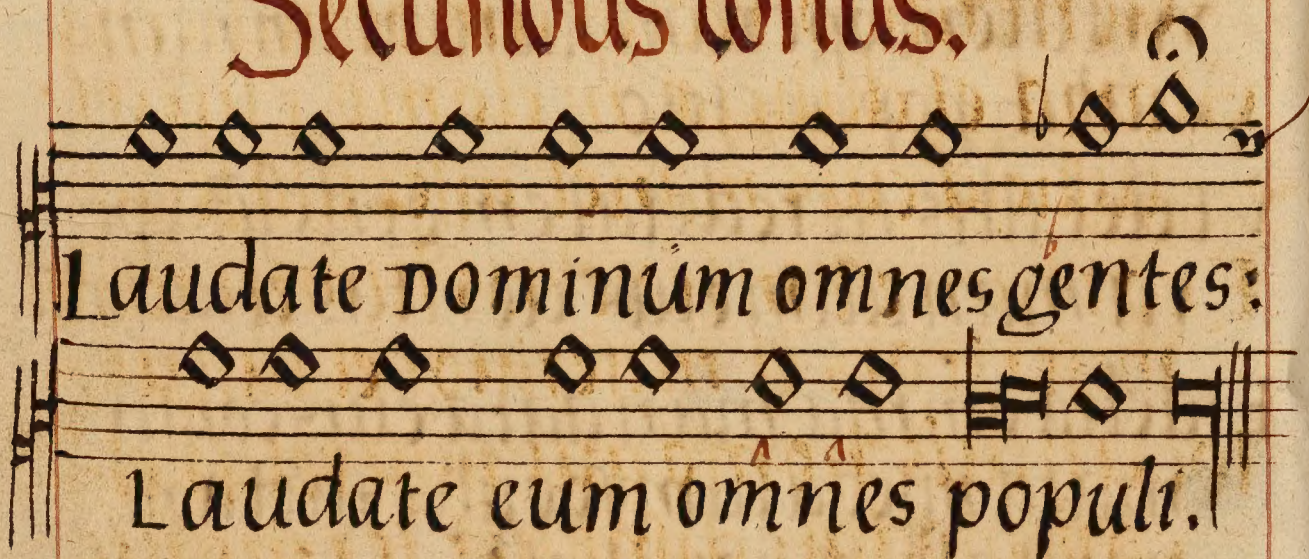 Secundus tonus.
Laudate Dominũm omnes gentes:
Laudate eum omnes populi.